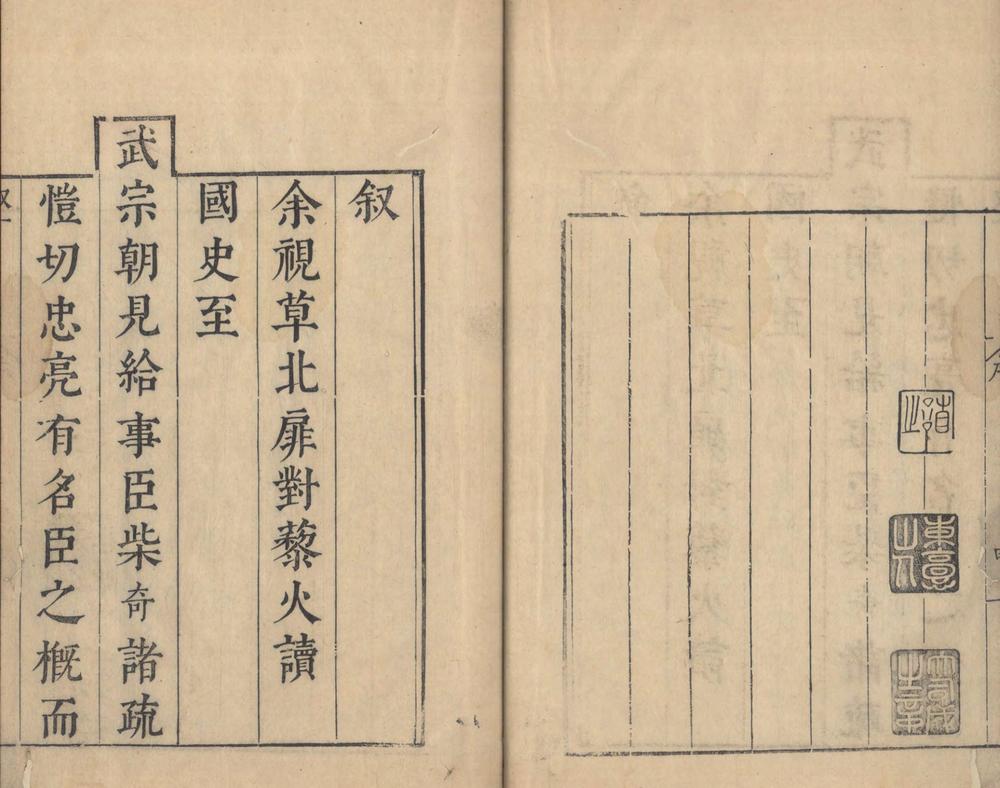 叙
余視草北扉對藜火讀
國史至
武宗朝見給事臣柴奇諸疏
愷切忠亮有名臣之概而